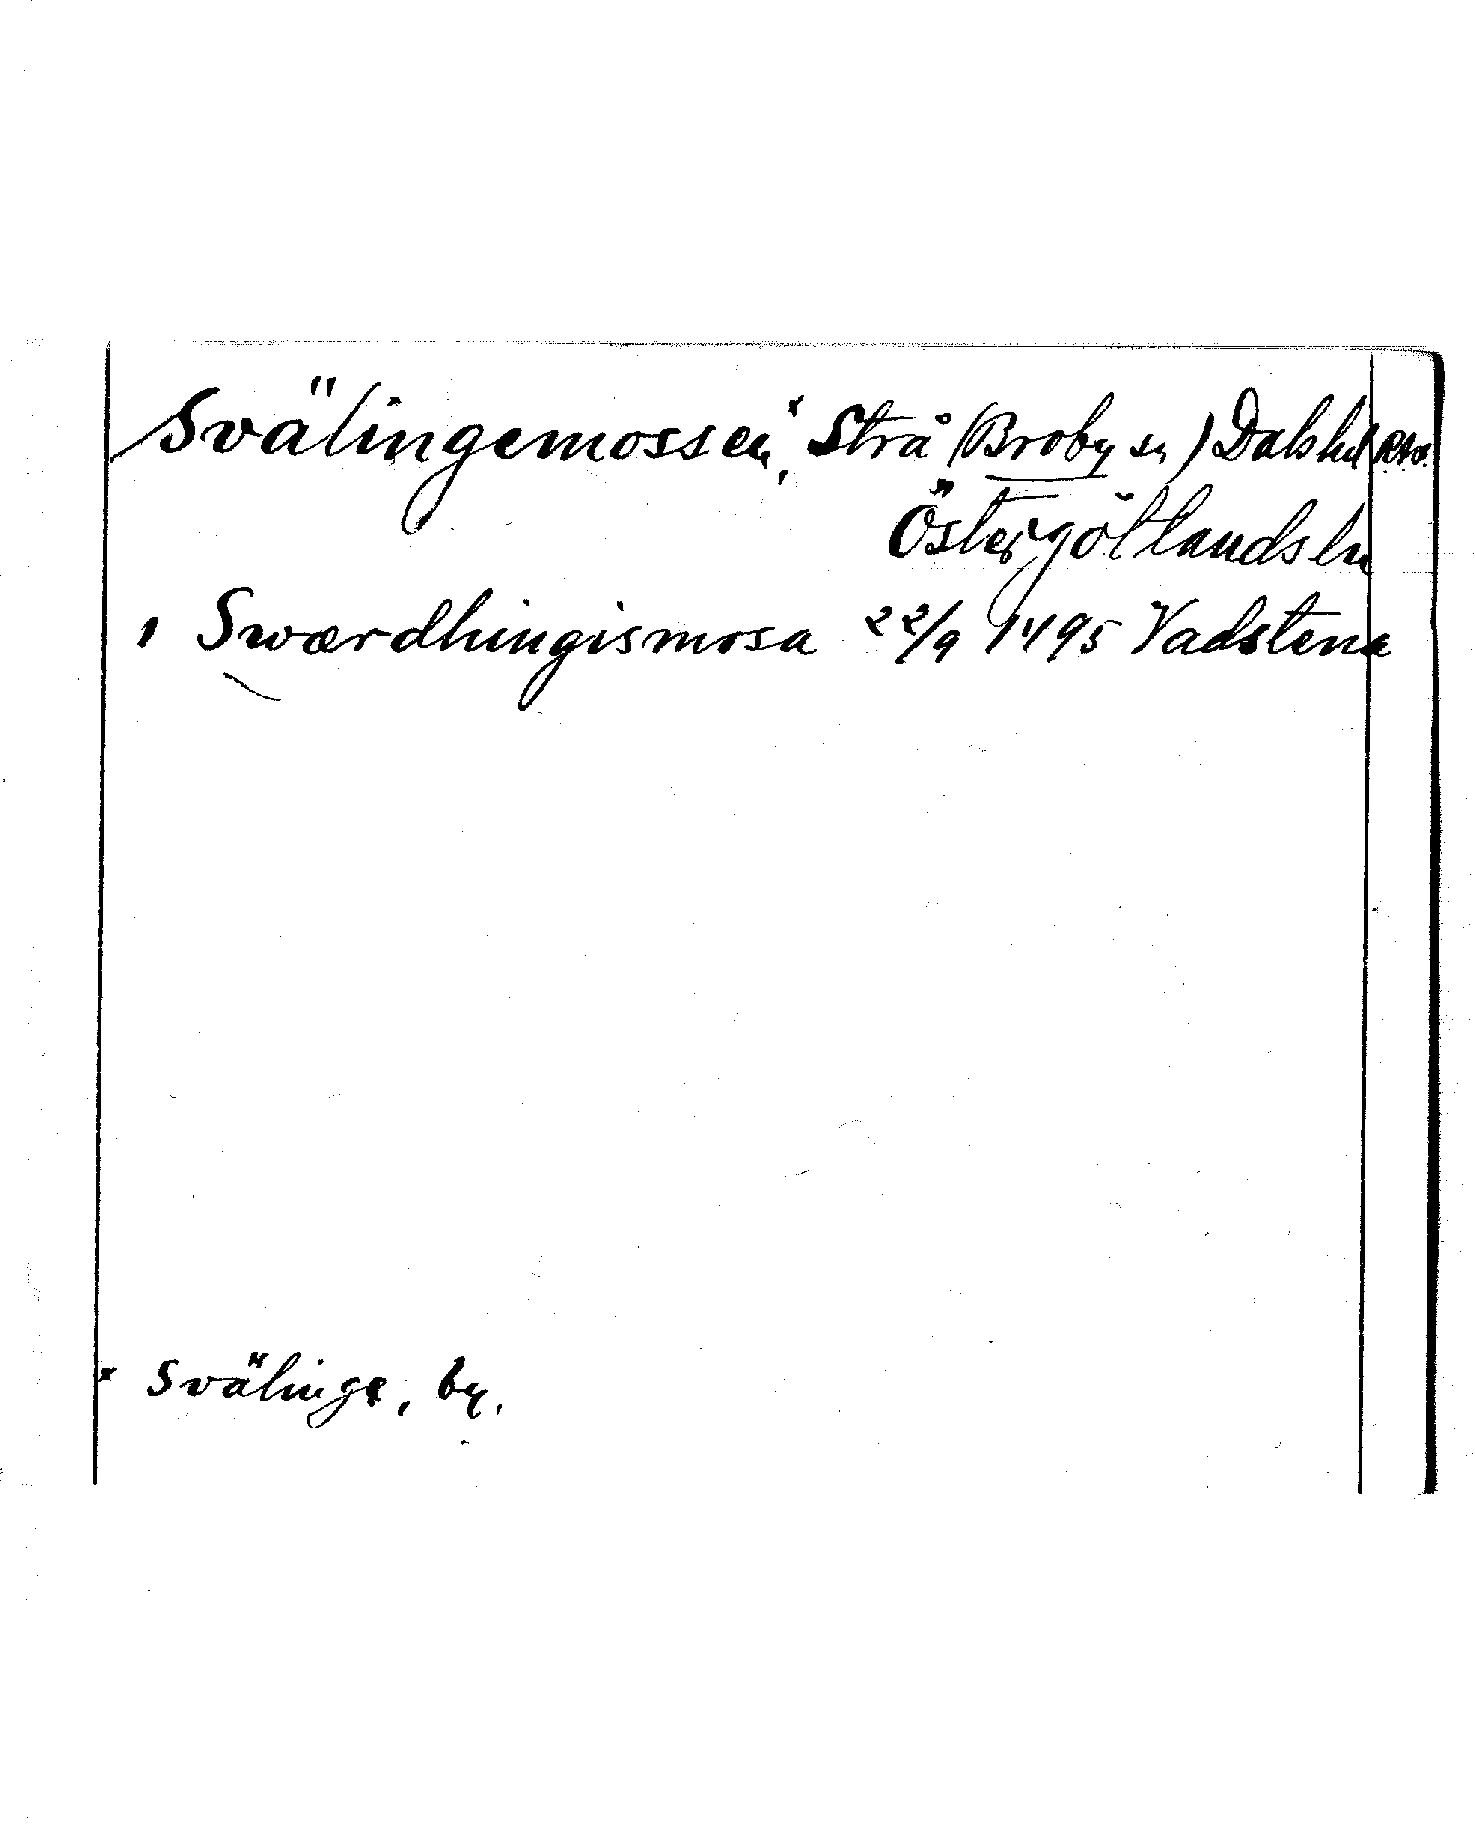 Svälingemossen,ˣ Strå (Broby sn) Dals hd RAä.
Östergötlands ln
, Swærdhingismosa 22/9 1495 Vadstena
ˣ Svälinge, by.